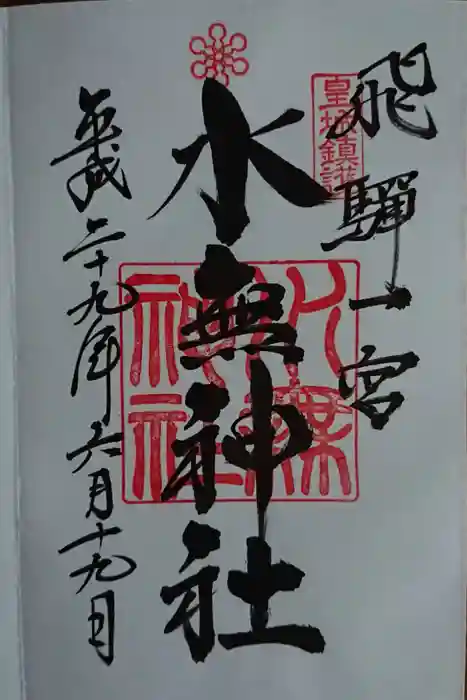 飛騨一宮
皇城鎮護
水無神社
水無神社
平成二十九年六月十九日